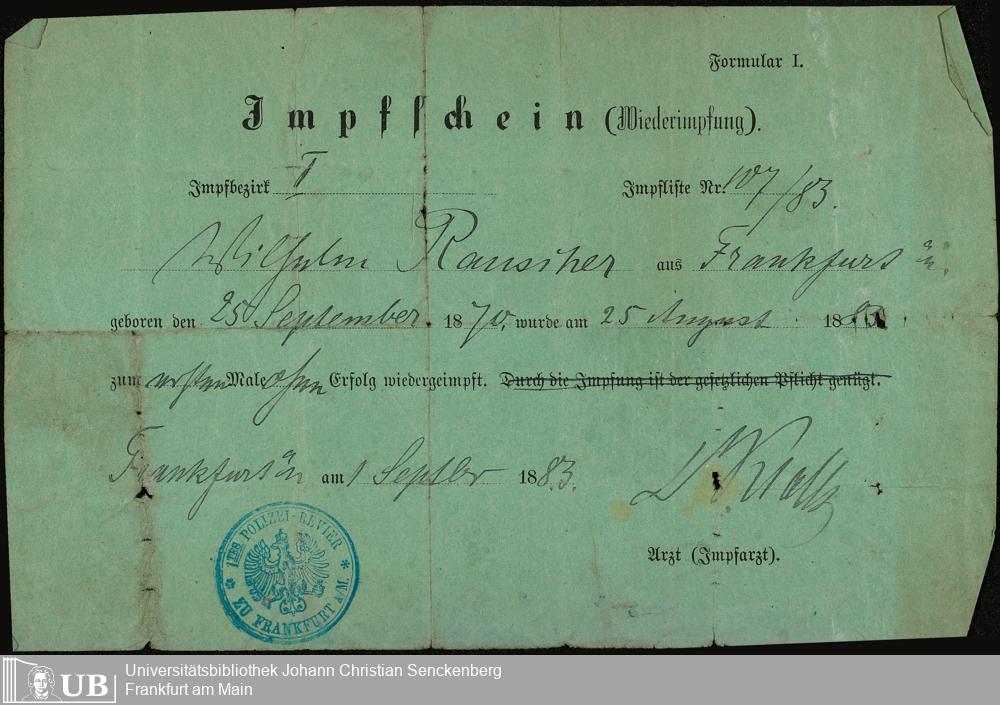 Formular I.
Impfschein (Wiederimpfung).
Impfbezirk I Impfliste Nr. 107/83.
Wilhelm Rauscher aus Frankfurt
geboren den 25 September 1870, wurde am 25 August 18
zum ersten Male ohne Erfolg wiedergeimpft. Durch die Impfung ist der gesetzlichen Pflicht genügt.
Frankfurt am 1 Septbr 1883.
Arzt (Impfarzt).
1TES POLIZEI-REVIER
ZU FRANKFURT A/M.
UB
Universitätsbibliothek Johann Christian Senckenberg
Frankfurt am Main